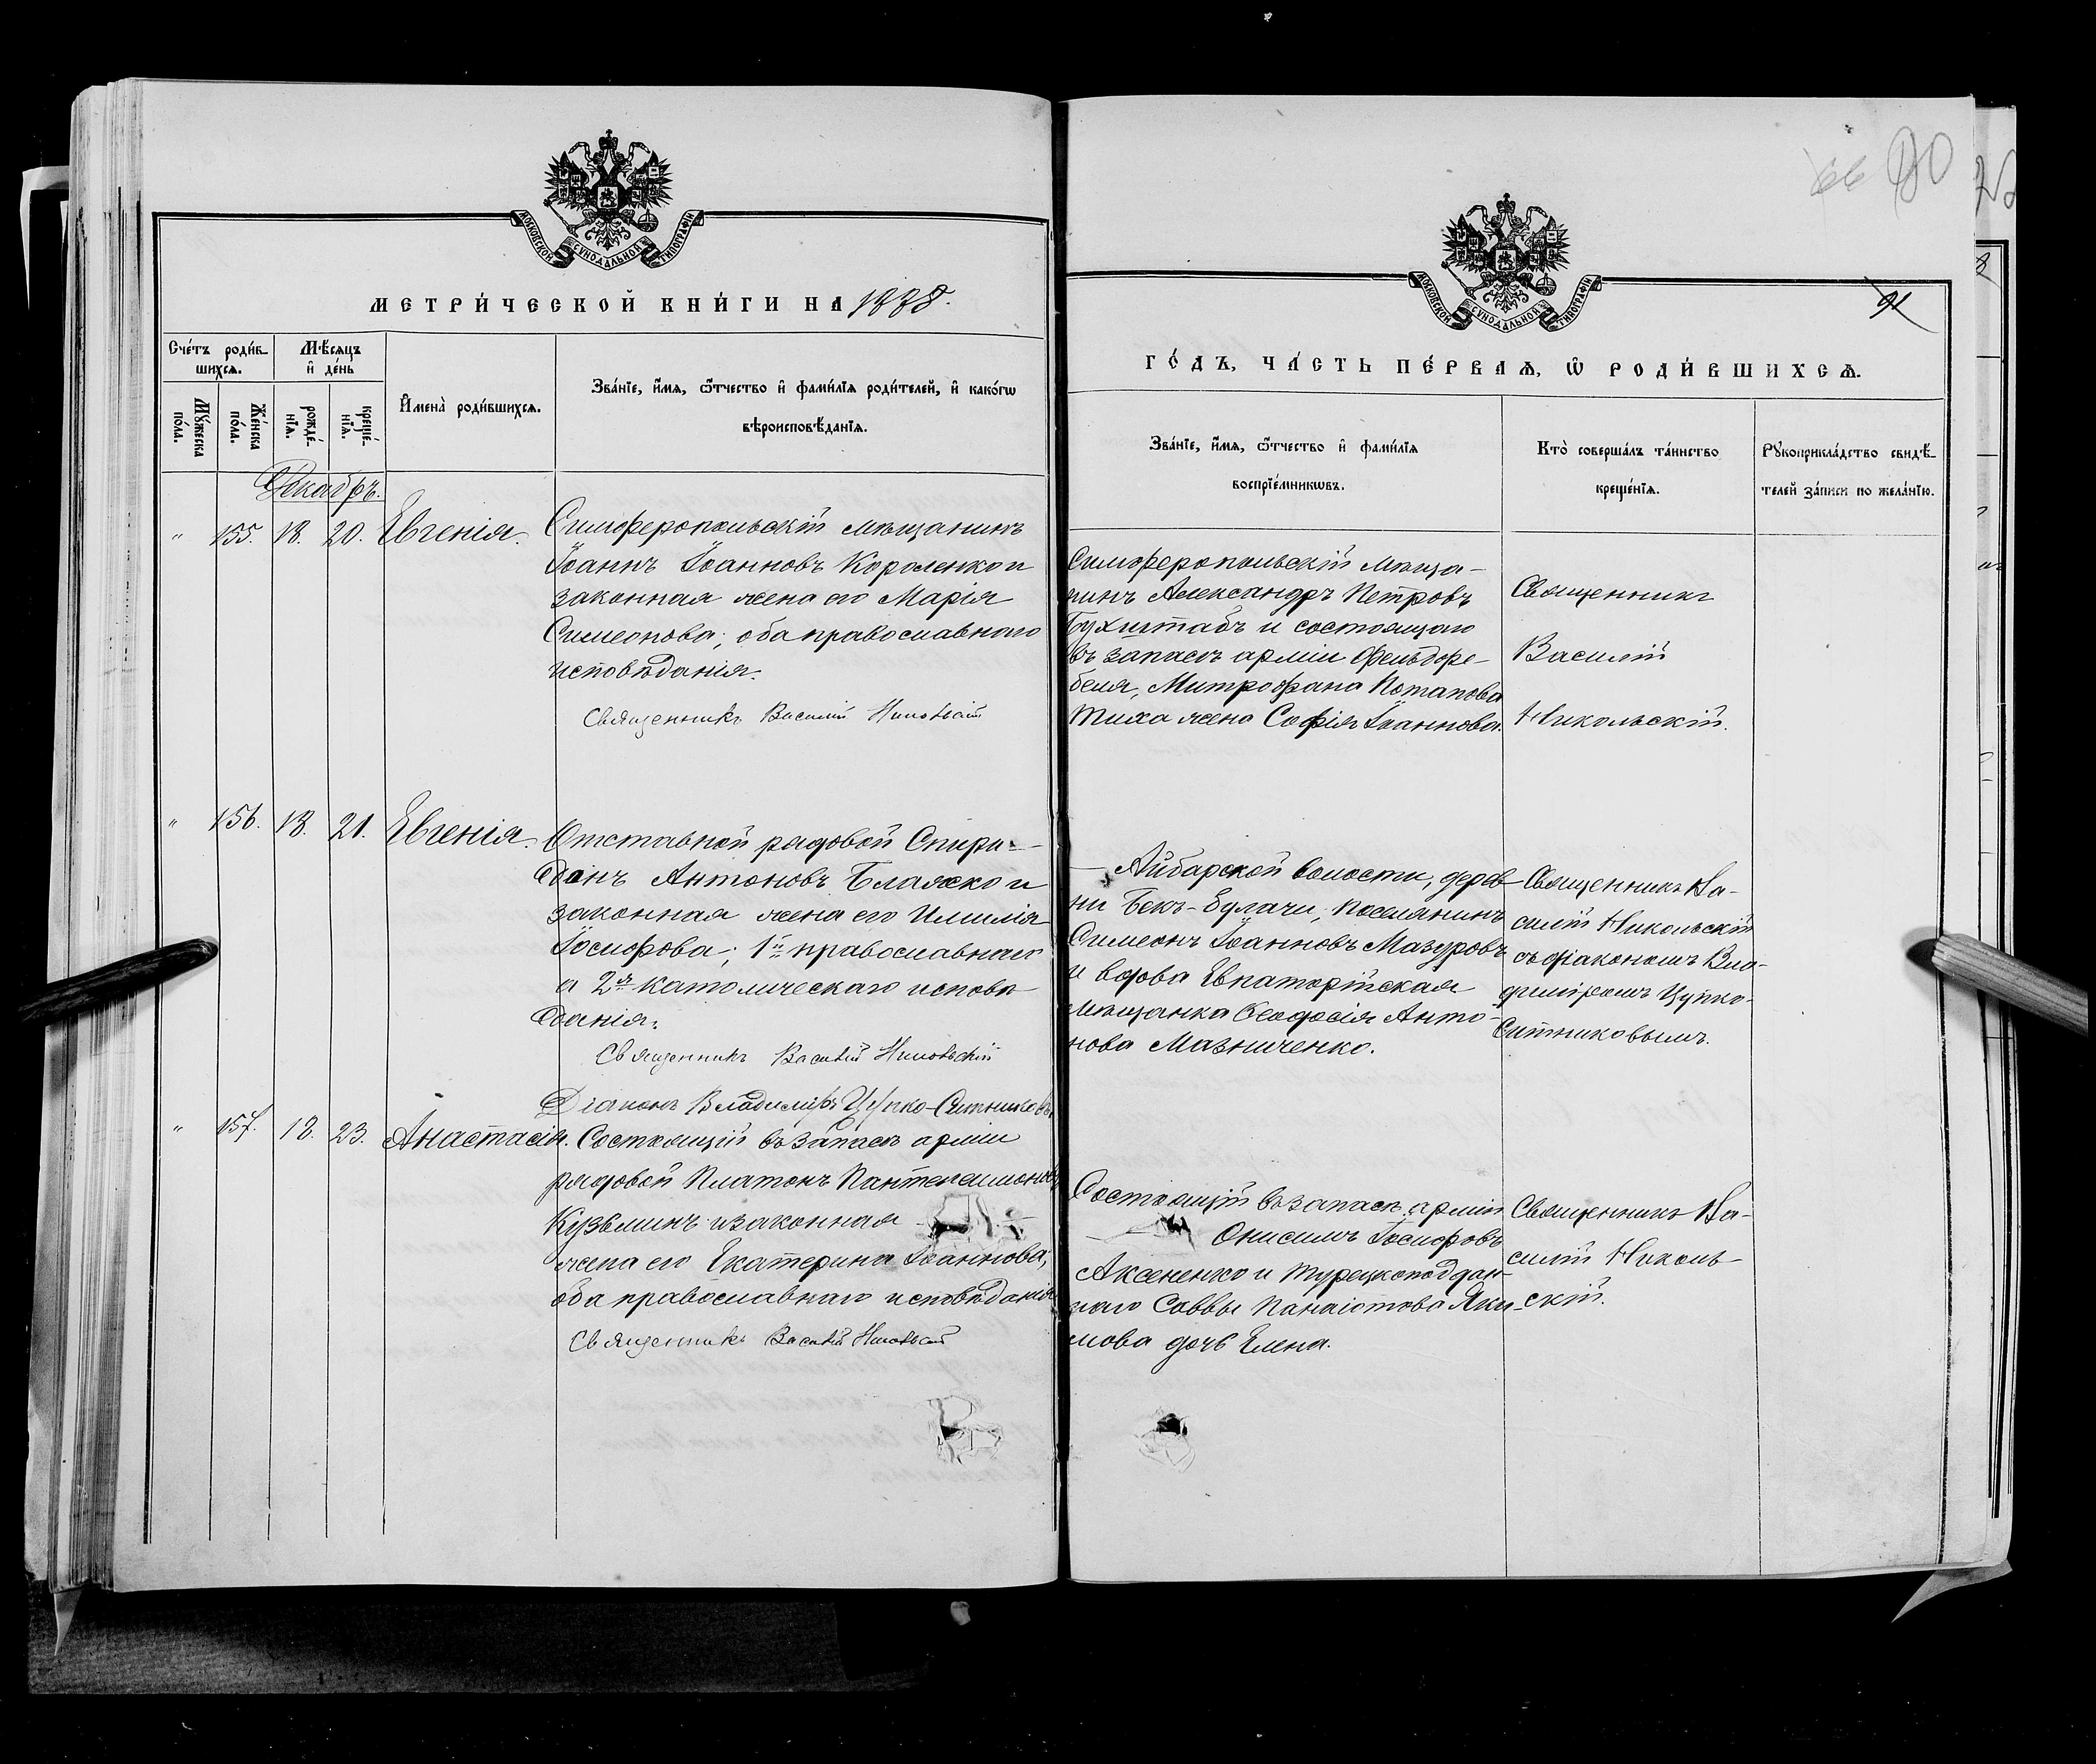 МОСКОВСКОЙ СУНОДАЛЬНОЙ ТИПОГРАФІИ
МЕТРИ́ЧЕСКОЙ КНИ́ГИ НА 1888.
Сче́тъ роди́в-
шихсѧ.
Мѣ́сяцъ
и҆ де́нь
Мꙋ́жеска
по́ла.
Же́нска
по́ла.
рожде́-
нїѧ.
креще́-
нїѧ.
И҆мена̀ роди́вшихсѧ.
Зва́нїе, и҆́мѧ, ѻ҆́тчество и҆ фами́лїѧ роди́телей, и҆ како́гѡ
вѣроисповѣ́данїѧ.
Декабрь.
" 155. 18. 20. Евгенія.
Симферопольскій мѣщанинъ
Іоаннъ Іоанновъ Короленко и
законная жена его Марія
Симеонова; оба православнаго
исповѣданія.
Священникъ Василій Никольскій
" 156. 18. 21. Евгенія.
Отставной рядовой Спири-
донъ Антоновъ Блажко и
законная жена его Илимія
Іосифова; 1й православнаго
а 2я католическаго исповѣ-
данія.
Священникъ Василій Никольскій
Діаконъ Владиміръ Цупко-Ситниковъ
" 157. 18. 23. Анастасія.
Состоящій въ запасѣ арміи
рядовой Платонъ Пантелеимоновъ
Кузьминъ и законная
жена его Екатерина Іоаннова;
оба православнаго исповѣданія.
Священникъ Василій Никольскій
66
91
МОСКОВСКОЙ СУНОДАЛЬНОЙ ТИПОГРАФІИ
ГО́ДЪ, ЧА́СТЬ ПЕ́РВАѦ, Ѡ҆ РОДИ́ВШИХСѦ.
Зва́нїе, и҆́мѧ, ѻ҆́тчество и҆ фами́лїѧ
воспрїе́мникѡвъ.
Кто̀ соверша́лъ та́инство
креще́нїѧ.
Рꙋкоприкла́дство свидѣ́-
телей за́писи по жела́нїю.
Симферопольскій мѣща-
нинъ Александръ Петровъ
Бухштабъ и состоящаго
въ запасѣ арміи фельдфе-
беля, Митрофана Потапова
Тиха жена Софія Іоаннова.
Священникъ
Василій
Никольскій.
Айбарской волости, дерев-
ни Бекъ-Булачи, поселянинъ
Симеонъ Іоанновъ Мазуровъ
и вдова Евпаторійская
мѣщанка Ѳеодосія Анто-
нова Мазниченко.
Священникъ Ва-
силій Никольскій
съ діакономъ Вла-
диміромъ Цупко-
Ситниковымъ.
Состоящій въ запасѣ арміи
Онисимъ Іосифовъ
Аксененко и турецкоподдан-
наго Саввы Панаіотова Яки-
мова дочь Елена.
Священникъ Ва-
силій Николь-
скій.